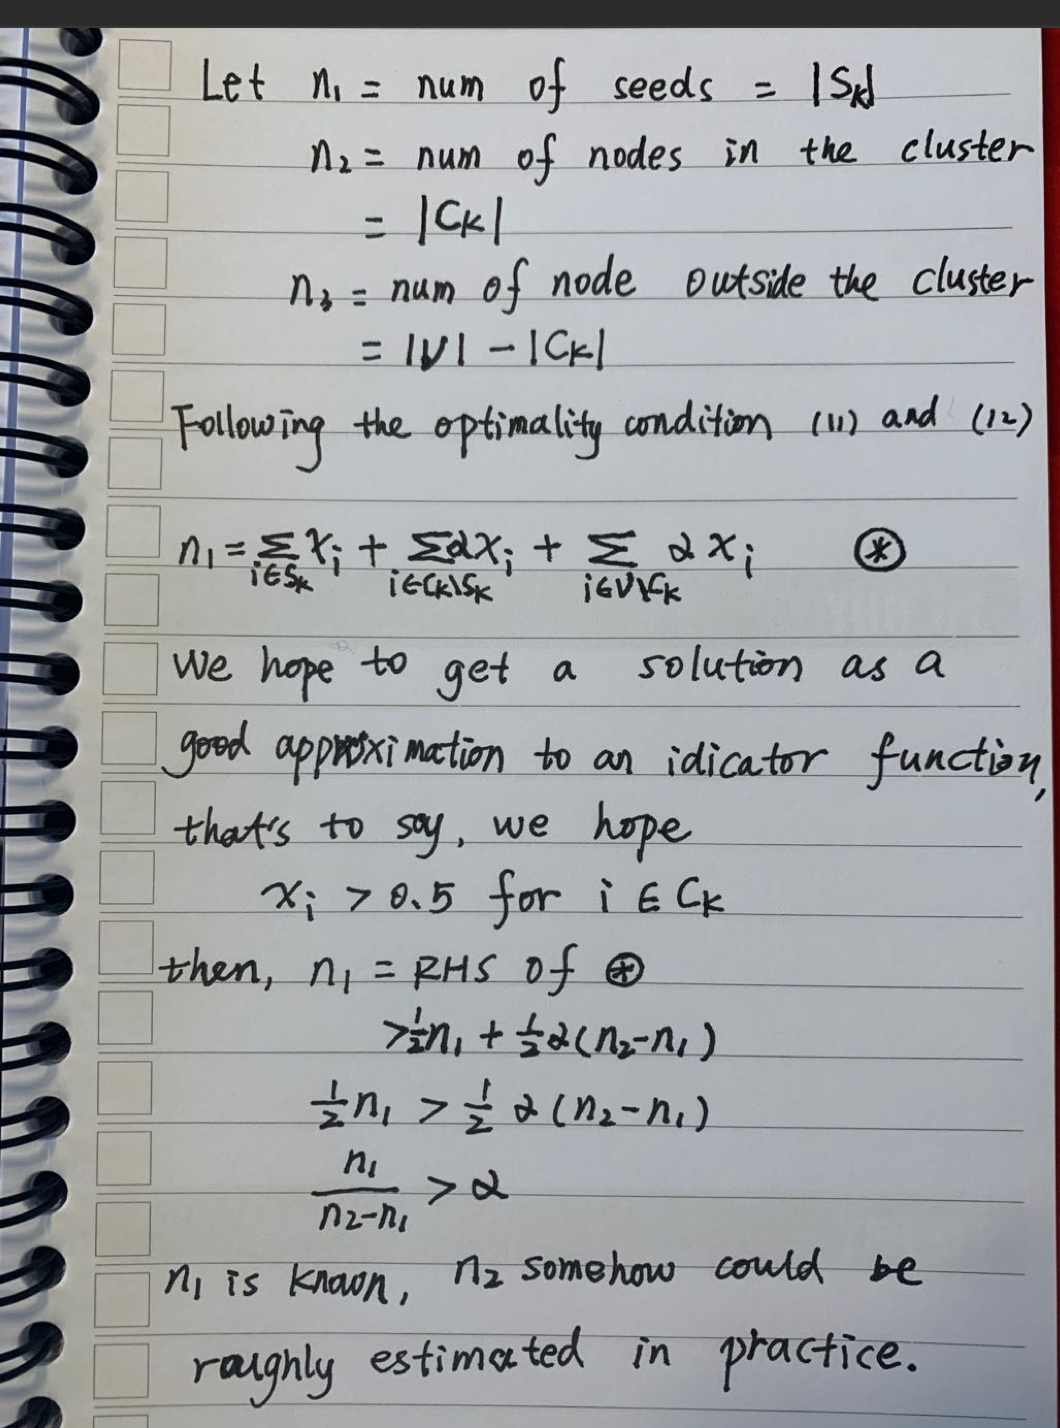 Let n₁ = num of seeds = |Sₖ|
n₂ = num of nodes in the cluster
= |Cₖ|
n₃ = num of node outside the cluster
= |V| - |Cₖ|
Following the optimality condition (11) and (12)
n₁ = Σ_{i∈Sₖ} xᵢ + Σ_{i∈Cₖ\Sₖ} αxᵢ + Σ_{i∈V\Cₖ} α xᵢ ⊛
We hope to get a solution as a
good approximation to an idicator function,
that's to say, we hope
xᵢ > 0.5 for i ∈ Cₖ
then, n₁ = RHS of ⊛
> ½n₁ + ½α(n₂-n₁)
½n₁ > ½ α(n₂-n₁)
n₁/(n₂-n₁) > α
n₁ is known, n₂ somehow could be
roughly estimated in practice.